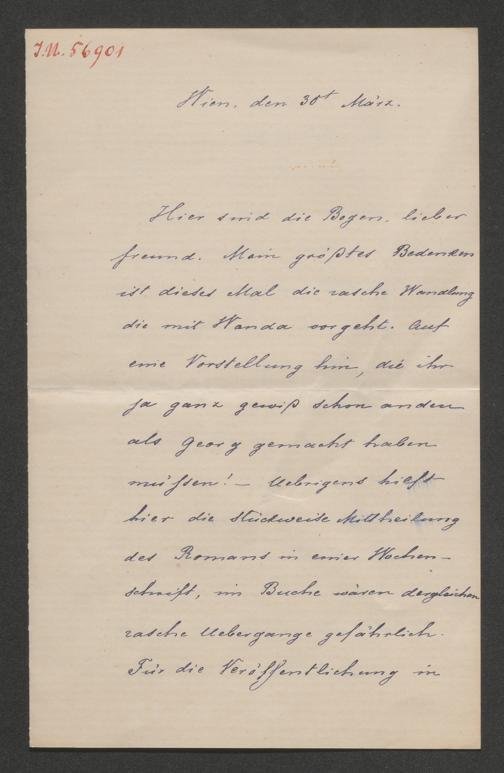 I.N. 56901
Wien, den 30t März.
Hier sind die Bogen, lieber
freund. Mein größtes Bedenken
ist dieses Mal die rasche Wandlung
die mit Wanda vorgeht. Auf
eine Vorstellung hin, die ihr
ja ganz gewiß schon andere
als Georg gemacht haben
müssen! — Uebrigens hilft
hier die stückweise Mittheilung
des Romans in einer Wochen-
schrift, im Buche wären dergleichen
rasche Uebergange gefährlich.
Für die Veröffentlichung in